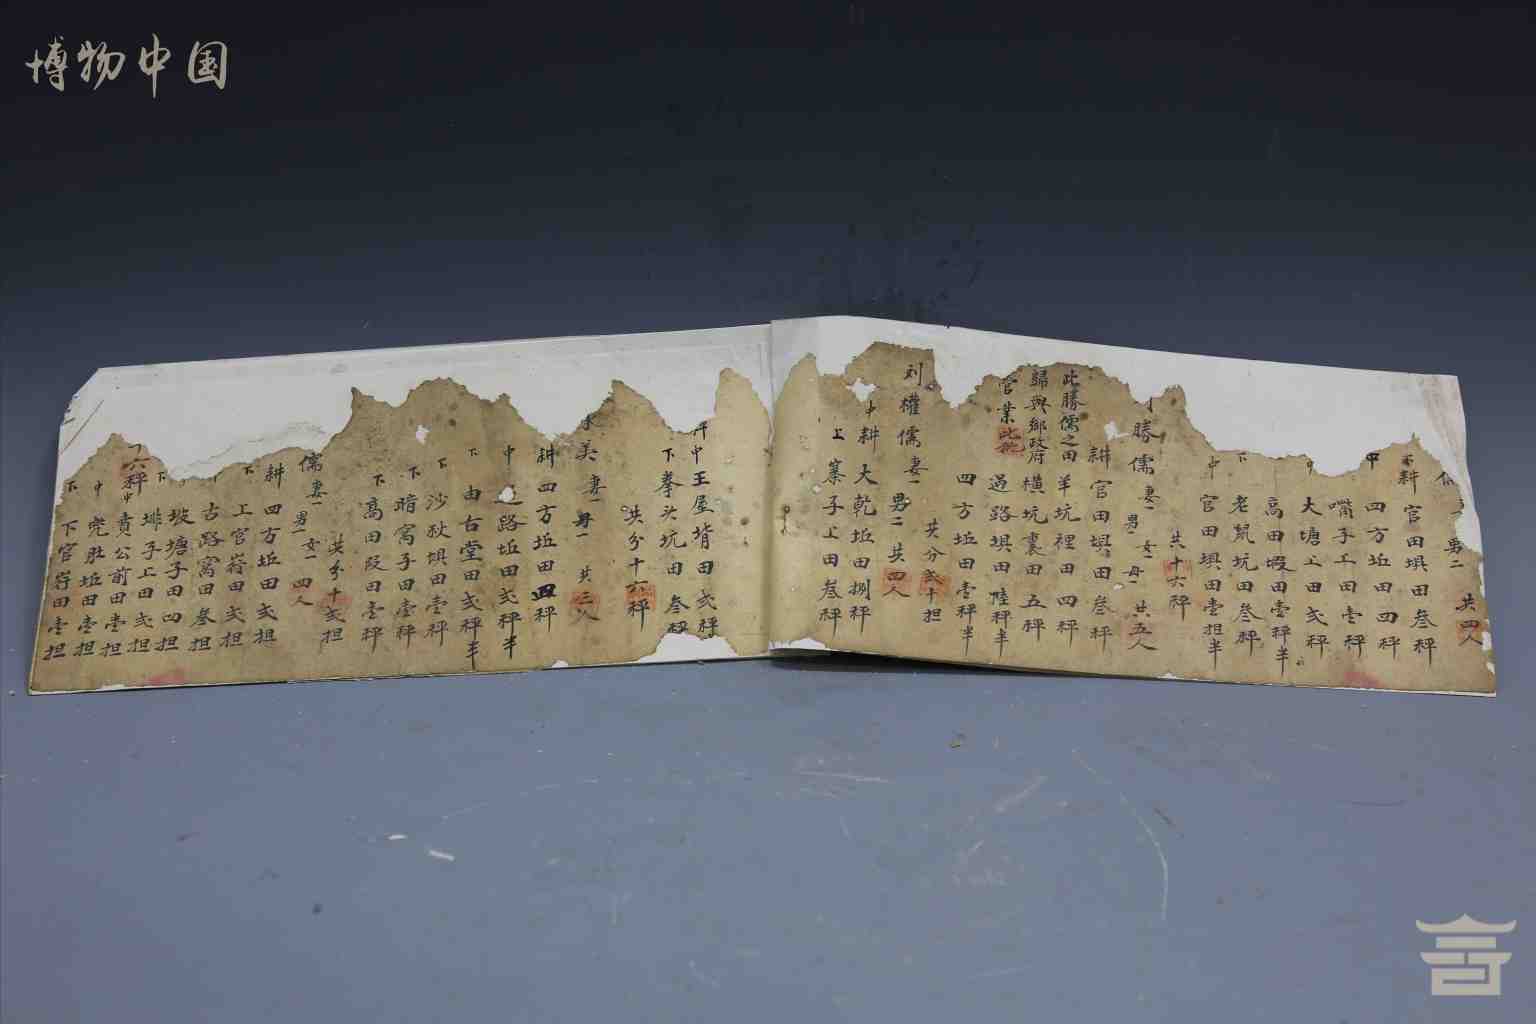 博物中国
男二 共四人
耕 官田垻田叁秤
中 四方坵田四秤
嘴子工田壹秤
大塘工田弍秤
高田塅田壹秤半
下 老鼠坑田叁秤
中 官田垻田壹担半
共十六秤
勝儒 妻一 男一 女一 母一 共五人
耕 官田垻田叁秤
此勝儒之田 羊坑裡田四秤
歸與鄉政府 橫坑裏田五秤
管業此批 過路垻田陸秤半
四方坵田壹秤半
共分弍十担
刘權儒 妻一 男二 共四人
中耕 大乾坵田捌秤
上 寨子工田叁秤
中王屋背田弍秤
下拳头坑田叁秤
共分十六秤
美 妻一 母一 共三人
耕四方坵田四秤
中 路坵田弍秤半
下 由台堂田弍秤半
下 沙狄垻田壹秤
下 暗窩子田壹秤
下 高田段田壹秤
共分十弍担
儒 妻一 男一 女一 四人
耕四方坵田弍担
下 工官嵙田弍担
古路窩田叁担
坡塘子田四担
排子工田弍担
六秤中賁公前田壹担
中 兜肚坵田壹担
下 下官嵙田壹担